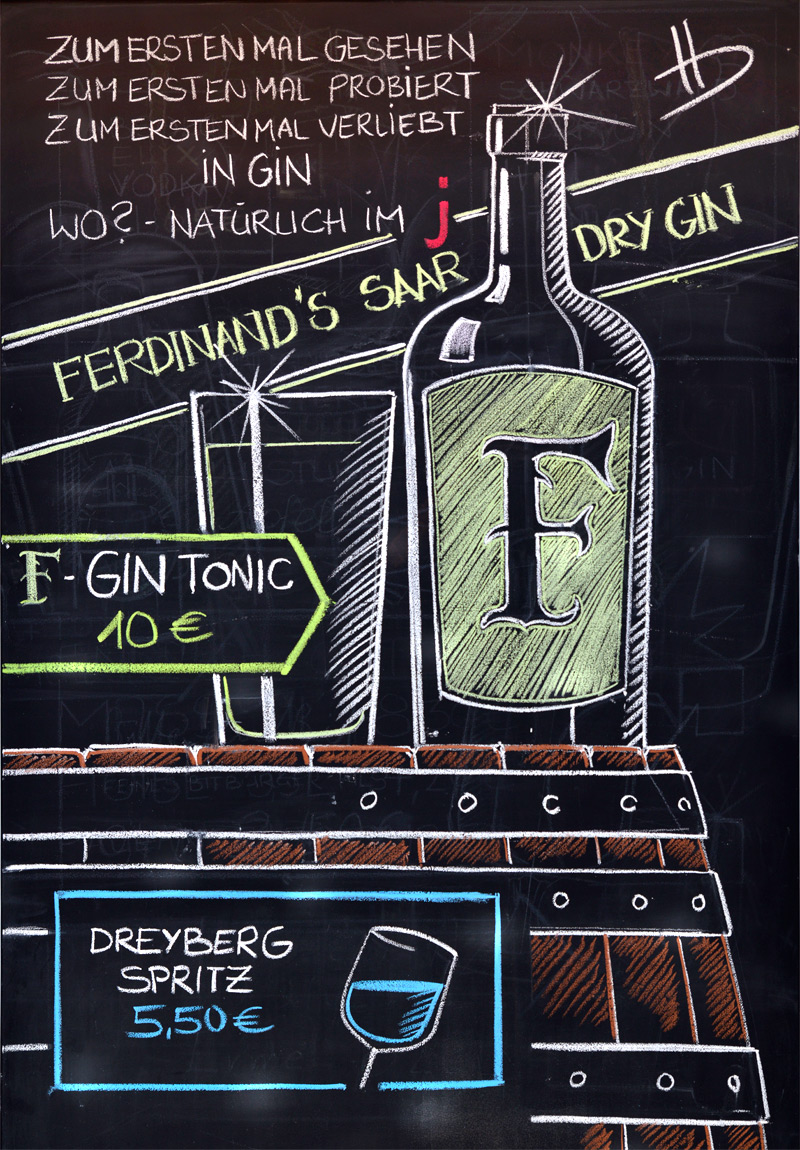 ZUM ERSTEN MAL GESEHEN
ZUM ERSTEN MAL PROBIERT
ZUM ERSTEN MAL VERLIEBT
IN GIN
WO? - NATÜRLICH IM j
FERDINAND'S SAAR DRY GIN
F
F - GIN TONIC
10 €
DREYBERG
SPRITZ
5,50 €